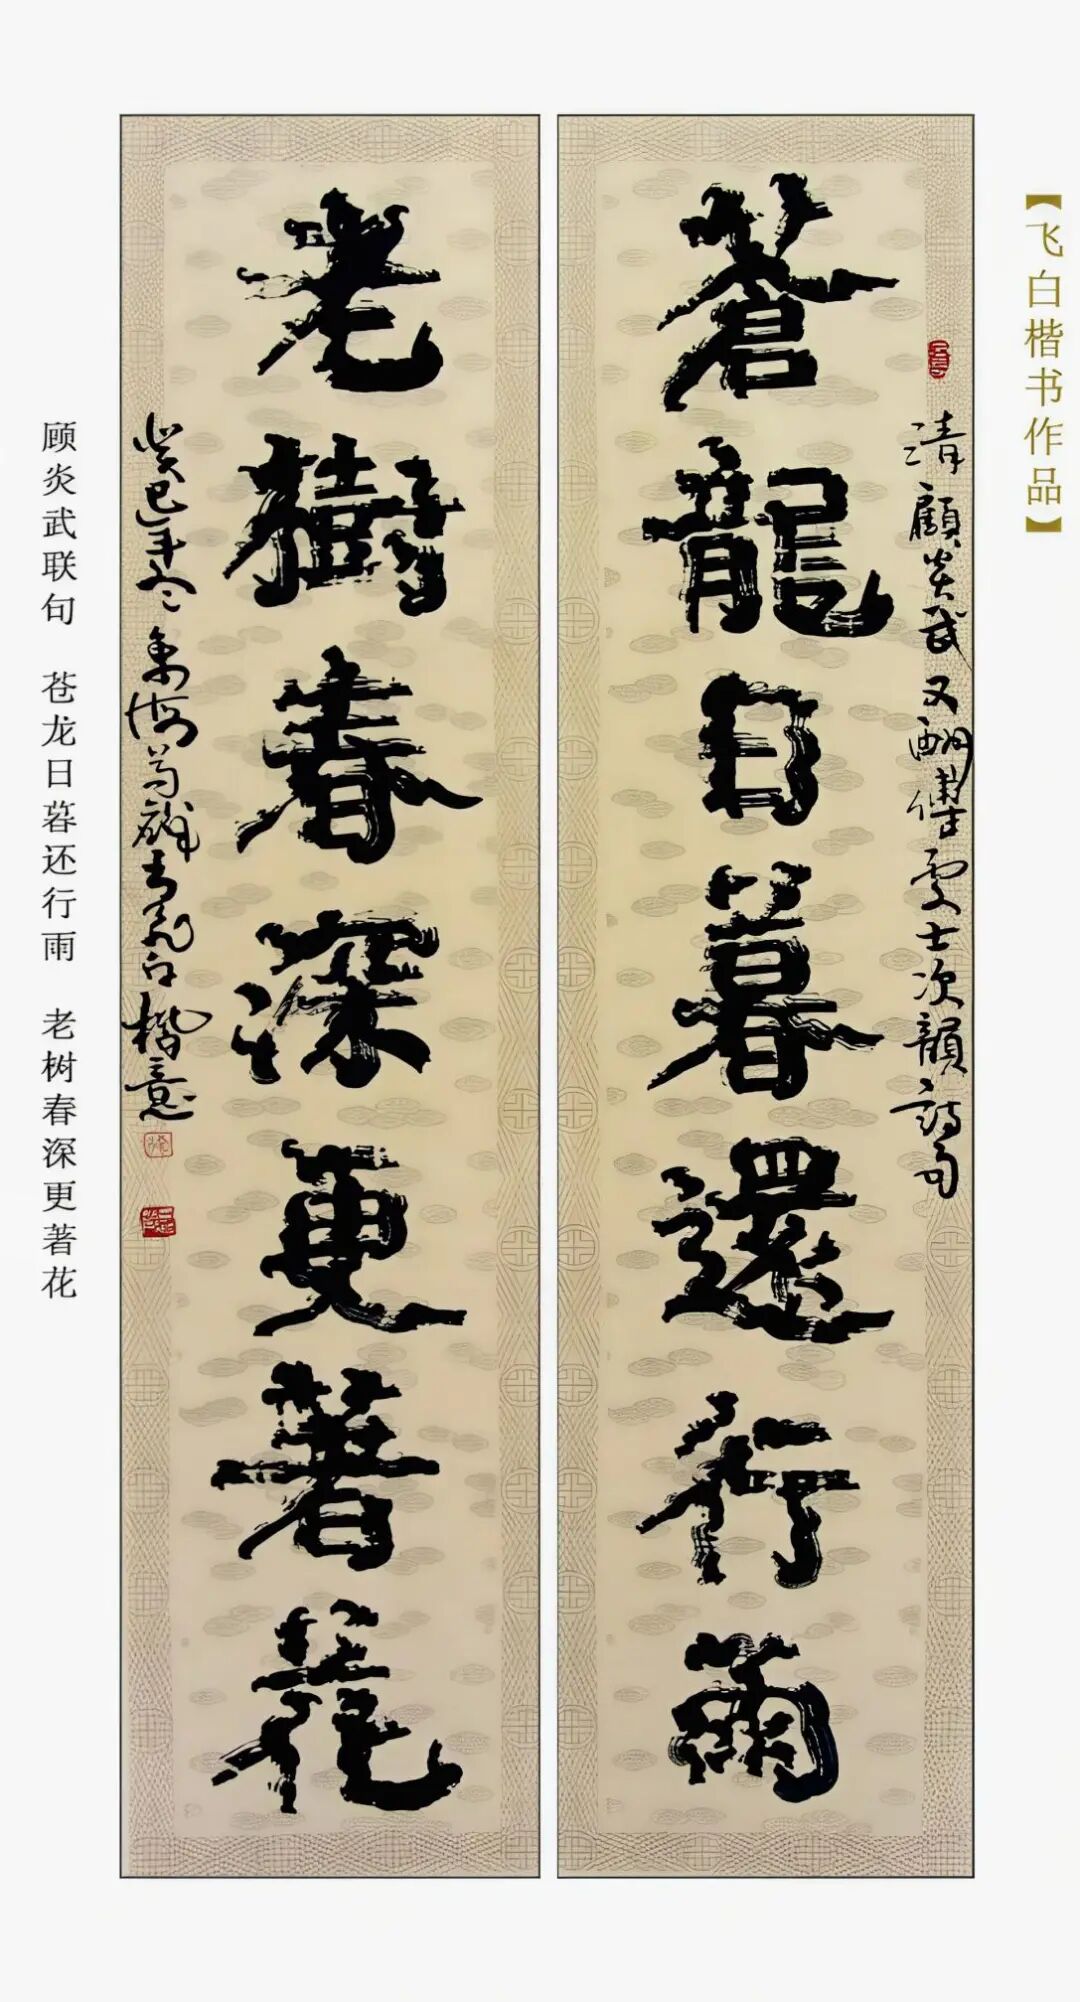 【飞白楷书作品】
清顧炎武又酬傅處士次韻詩句
蒼龍日暮還行雨
老樹春深更著花
癸巳年冬
飛白楷意
顾炎武联句 苍龙日暮还行雨 老树春深更著花